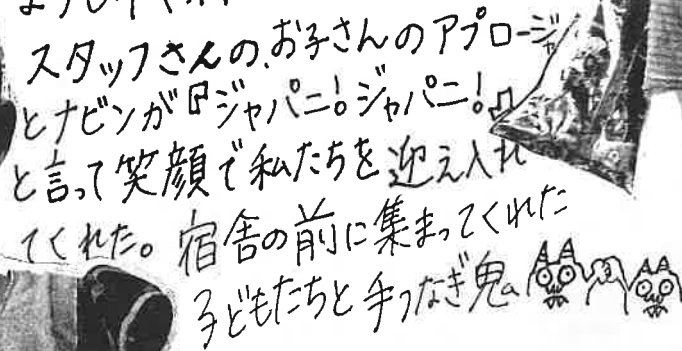 スタッフさんの、お子さんのアプロージャ
とナビンが『ジャパニ!ジャパニ!』
と言って笑顔で私たちを迎え入れ
てくれた。宿舎の前に集まってくれた
子どもたちと手つなぎ鬼。